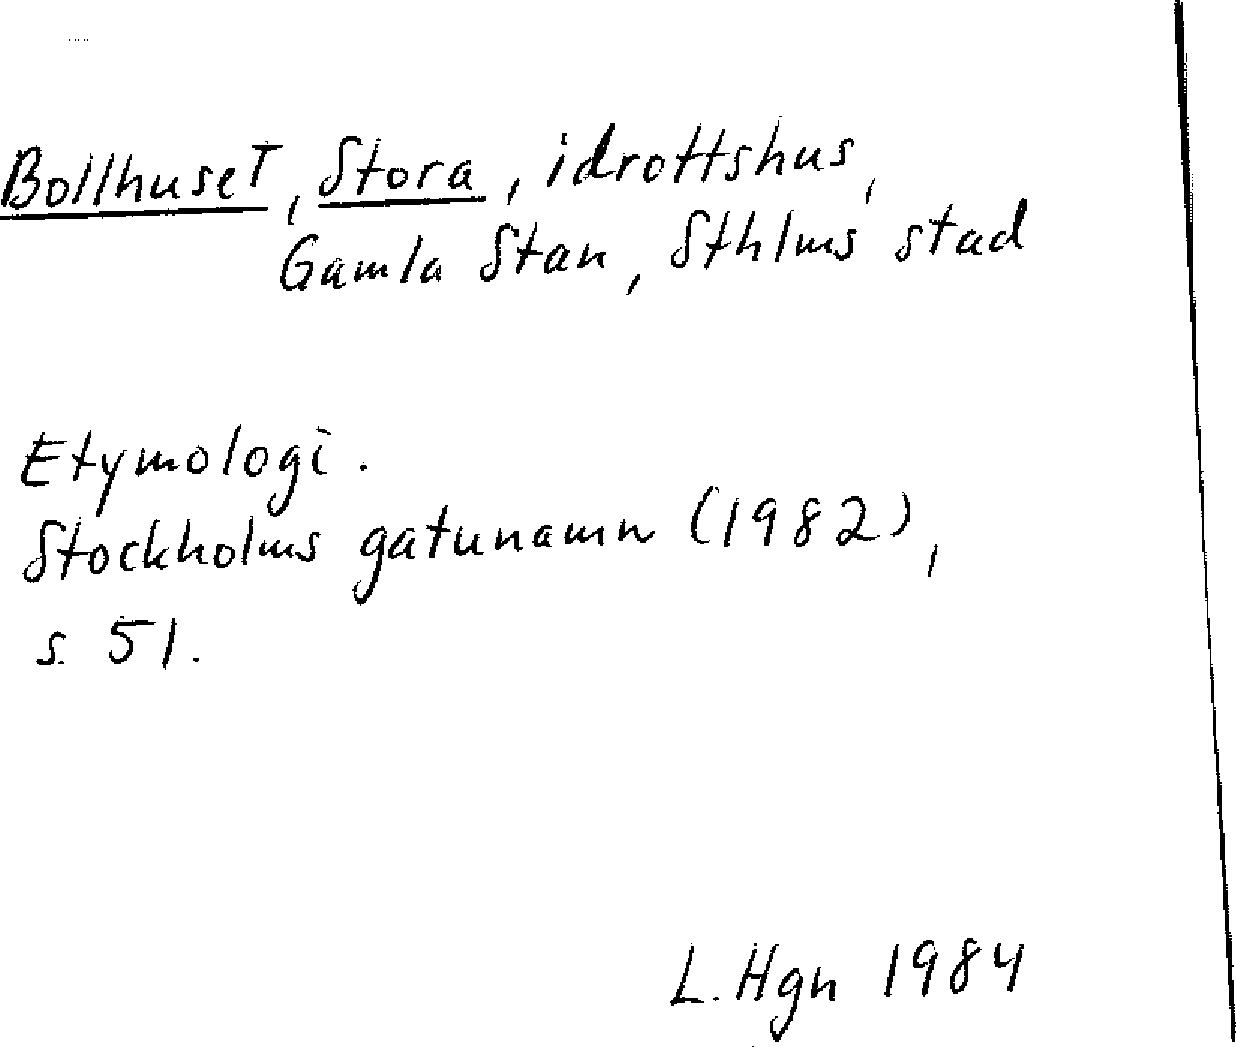 Bollhuset, Stora, idrottshus,
Gamla Stan, Sthlms stad
Etymologi.
Stockholms gatunamn (1982),
s. 51.
L. Hgn 1984